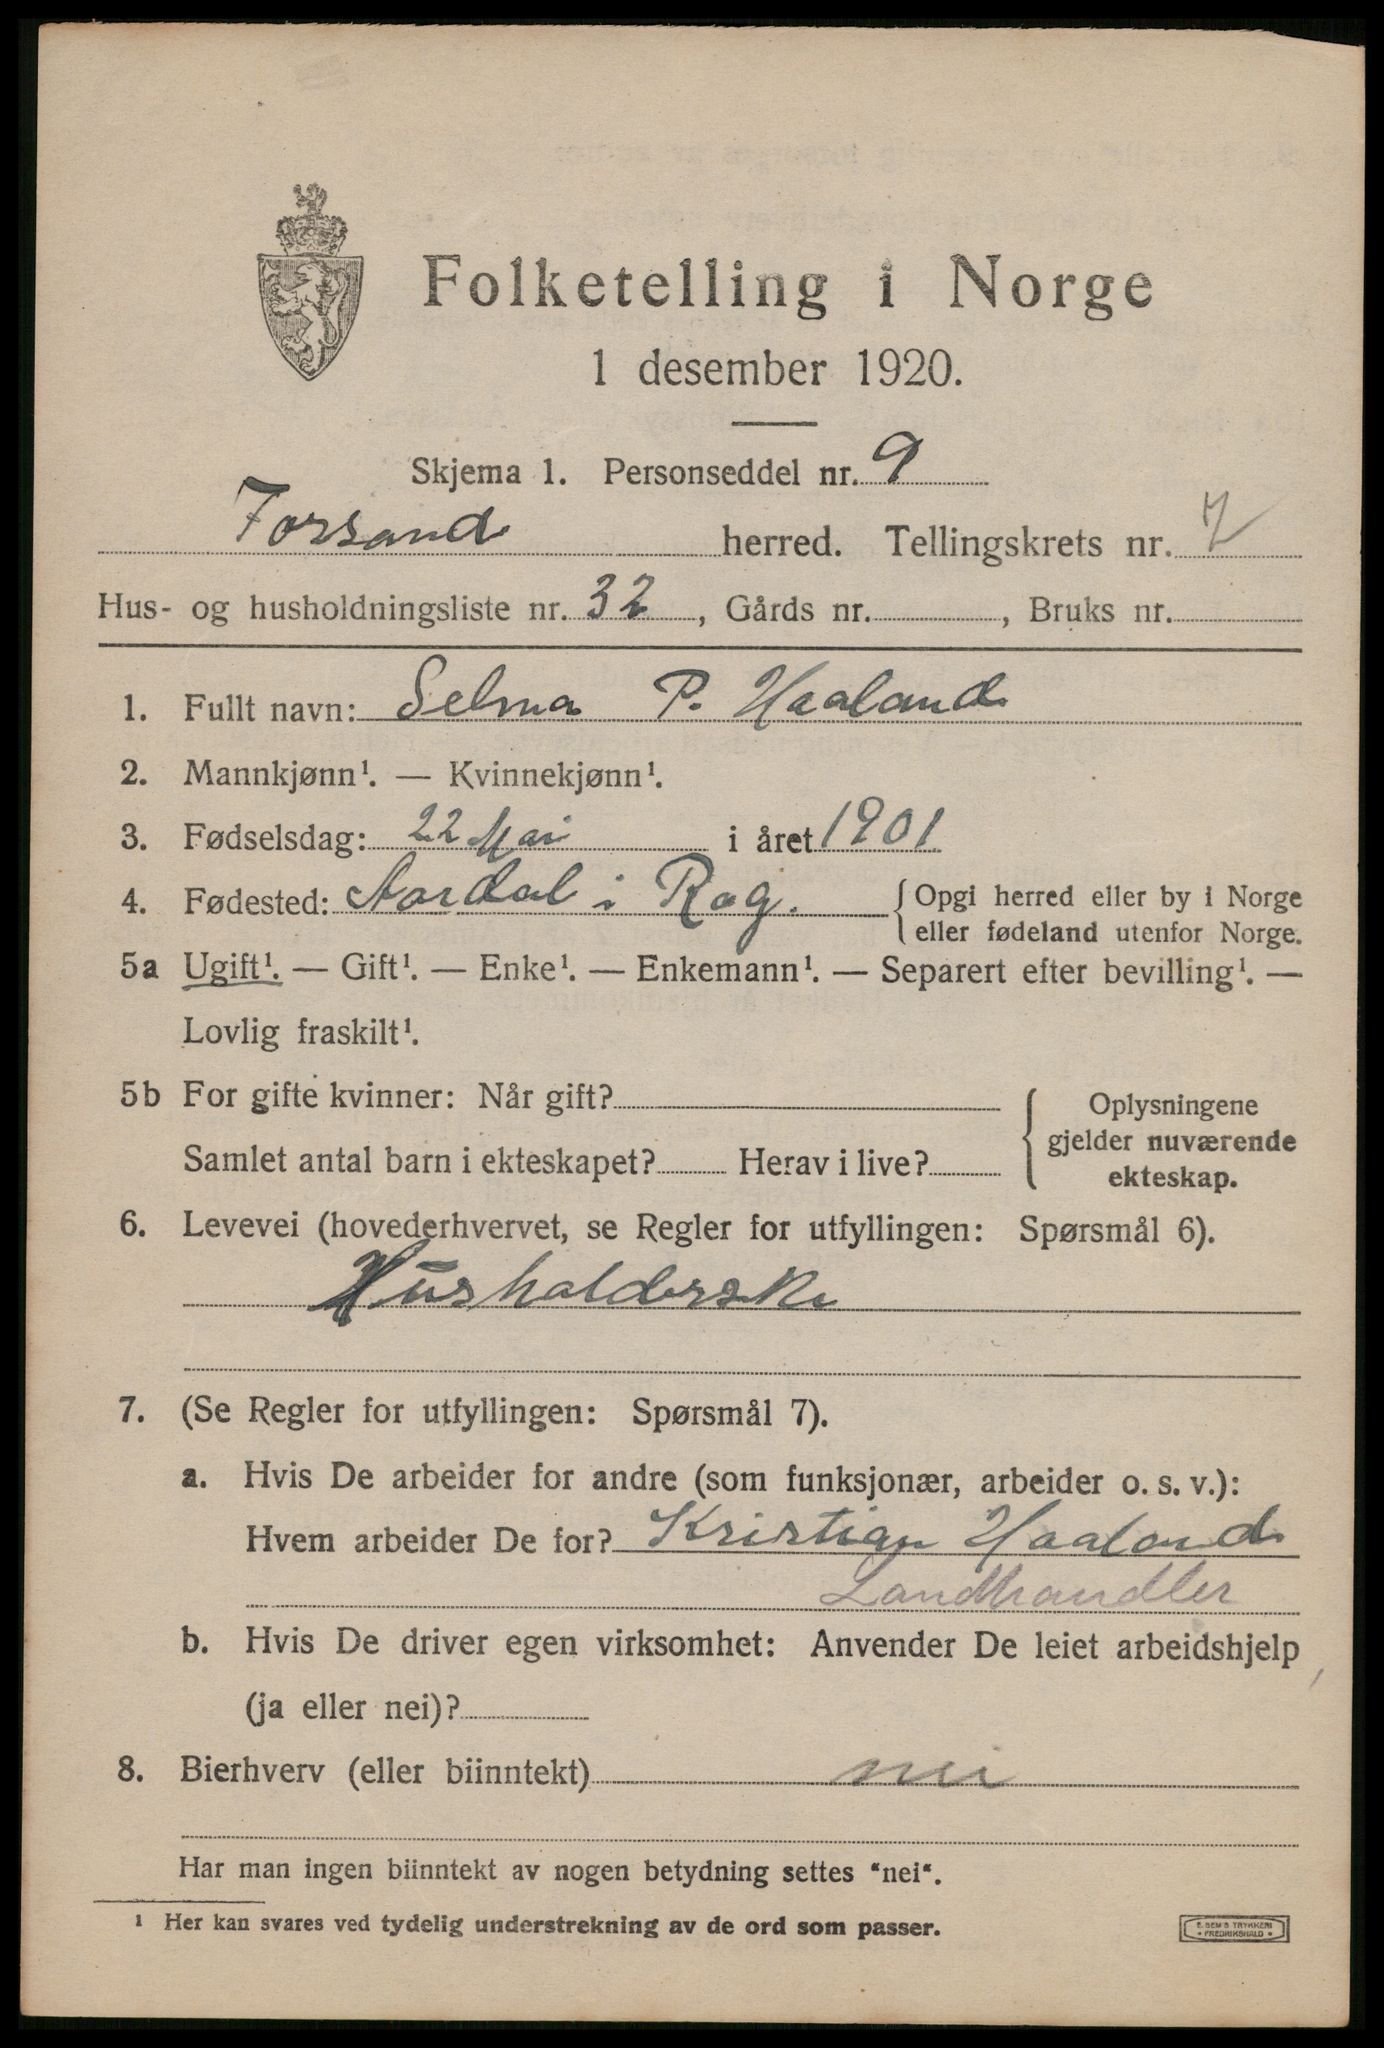 Folketelling i Norge
1 desember 1920.
Skjema 1. Personseddel nr. 9
Forsand herred. Tellingskrets nr. 7
Hus- og husholdningsliste nr. 32, Gårds nr. , Bruks nr.
1. Fullt navn: Selma P. Haaland
2. Mannkjønn¹. — Kvinnekjønn¹.
3. Fødselsdag: 22 Mai i året 1901
4. Fødested: Aardal i Rog. { Opgi herred eller by i Norge
eller fødeland utenfor Norge.
5a Ugift¹. — Gift¹. — Enke¹. — Enkemann¹. — Separert efter bevilling¹. —
Lovlig fraskilt¹.
5b For gifte kvinner: Når gift? { Oplysningene
gjelder nuværende
Samlet antal barn i ekteskapet? Herav i live?
ekteskap.
6. Levevei (hovederhvervet, se Regler for utfyllingen: Spørsmål 6).
Husholderske
7. (Se Regler for utfyllingen: Spørsmål 7).
a. Hvis De arbeider for andre (som funksjonær, arbeider o. s. v.):
Hvem arbeider De for? Kristian Haaland
Landhandler
b. Hvis De driver egen virksomhet: Anvender De leiet arbeidshjelp
(ja eller nei)?
8. Bierhverv (eller biinntekt) nei
Har man ingen biinntekt av nogen betydning settes "nei".
¹ Her kan svares ved tydelig understrekning av de ord som passer.
E. SEM'S TRYKKERI
• FREDRIKSHALD •